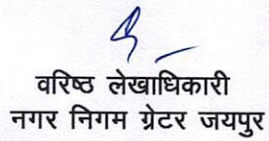 वरिष्ठ लेखाधिकारी
नगर निगम ग्रेटर जयपुर